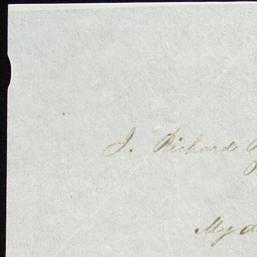 J. Richard
My d